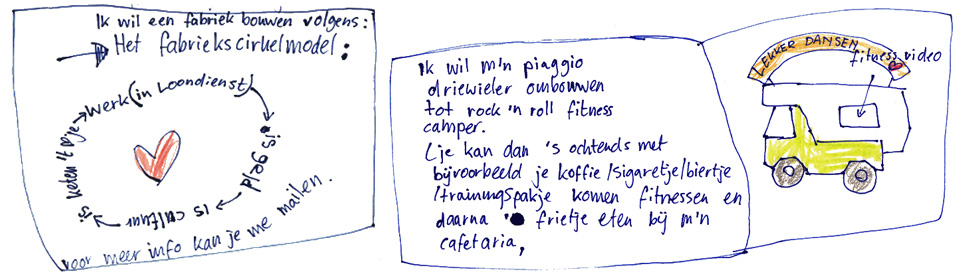 Ik wil een fabriek bouwen volgens:
Het fabriekscirkelmodel:
werk (in loondienst)
is geld
is cultuur
voor meer info kan je me mailen.
Ik wil m'n piaggio
driewieler ombouwen
tot rock 'n roll fitness
camper.
(je kan dan 's ochtends met
bijvoorbeeld je koffie/sigaretje/biertje
/trainingspakje komen fitnessen en
daarna frietje eten bij m'n
cafetaria,
LEKKER DANSEN
fitness video